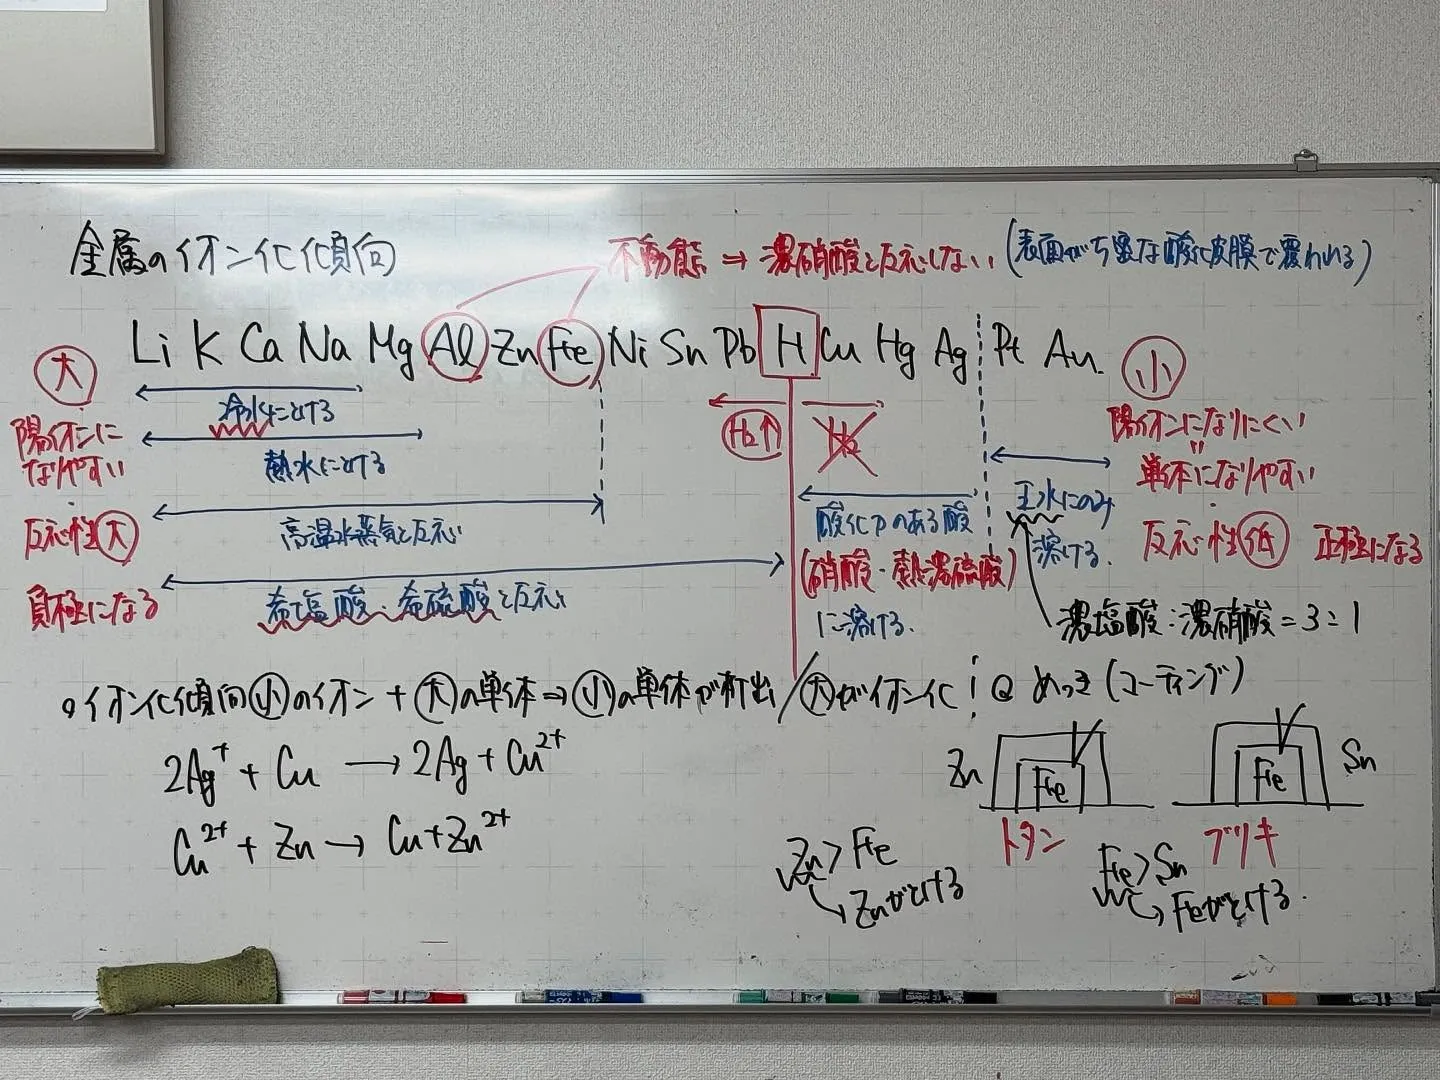 金属のイオン化傾向
不動態 ⇒ 濃硝酸と反応しない (表面がち密な酸化皮膜で覆われる)
Li K Ca Na Mg Al Zn Fe Ni Sn Pb H Cu Hg Ag Pt Au
大
小
陽イオンに
なりやすい
反応性大
負極になる
冷水にとける
熱水にとける
高温水蒸気と反応
希塩酸・希硫酸と反応
H₂↑
H₂
酸化力のある酸
(硝酸・熱濃硫酸)
に溶ける.
王水にのみ
溶ける.
濃塩酸:濃硝酸=3:1
陽イオンになりにくい
〃
単体になりやすい
反応性低 正極になる
○イオン化傾向小のイオン+大の単体⇒小の単体が析出/大がイオン化!
2Ag⁺ + Cu → 2Ag + Cu²⁺
Cu²⁺ + Zn → Cu + Zn²⁺
めっき(コーティング)
Zn Fe
トタン
Zn > Fe
Znがとける
Fe Sn
ブリキ
Fe > Sn
Feがとける.